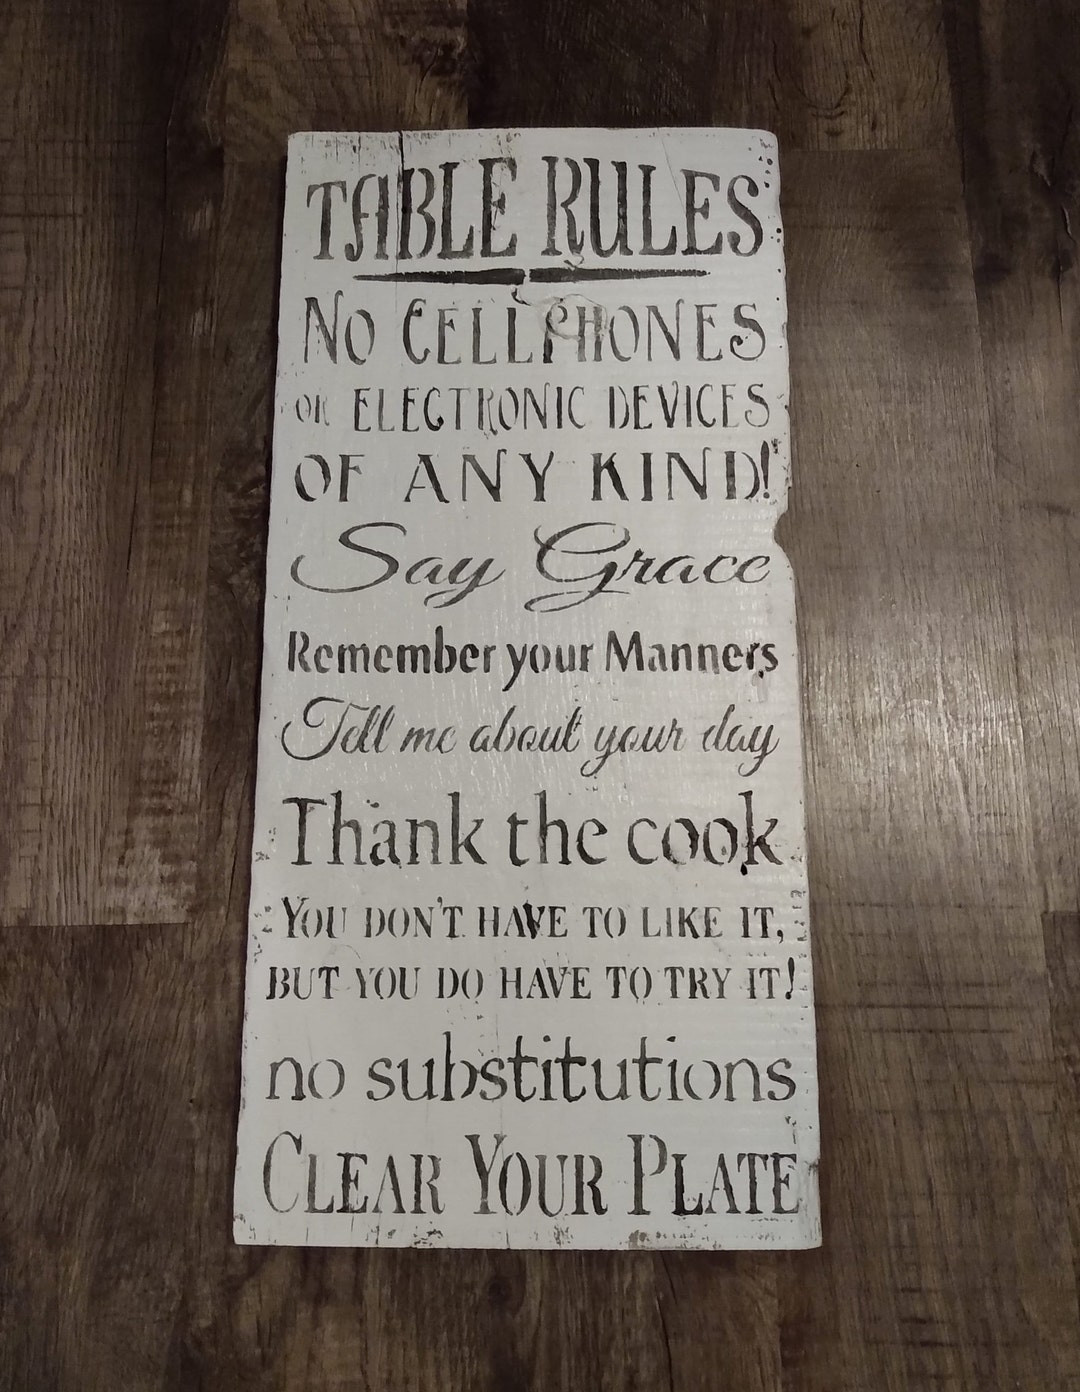 TABLE RULES
NO CELLPHONES
OR ELECTRONIC DEVICES
OF ANY KIND!
Say Grace
Remember your Manners
Tell me about your day
Thank the cook
YOU DON'T HAVE TO LIKE IT,
BUT YOU DO HAVE TO TRY IT!
no substitutions
CLEAR YOUR PLATE